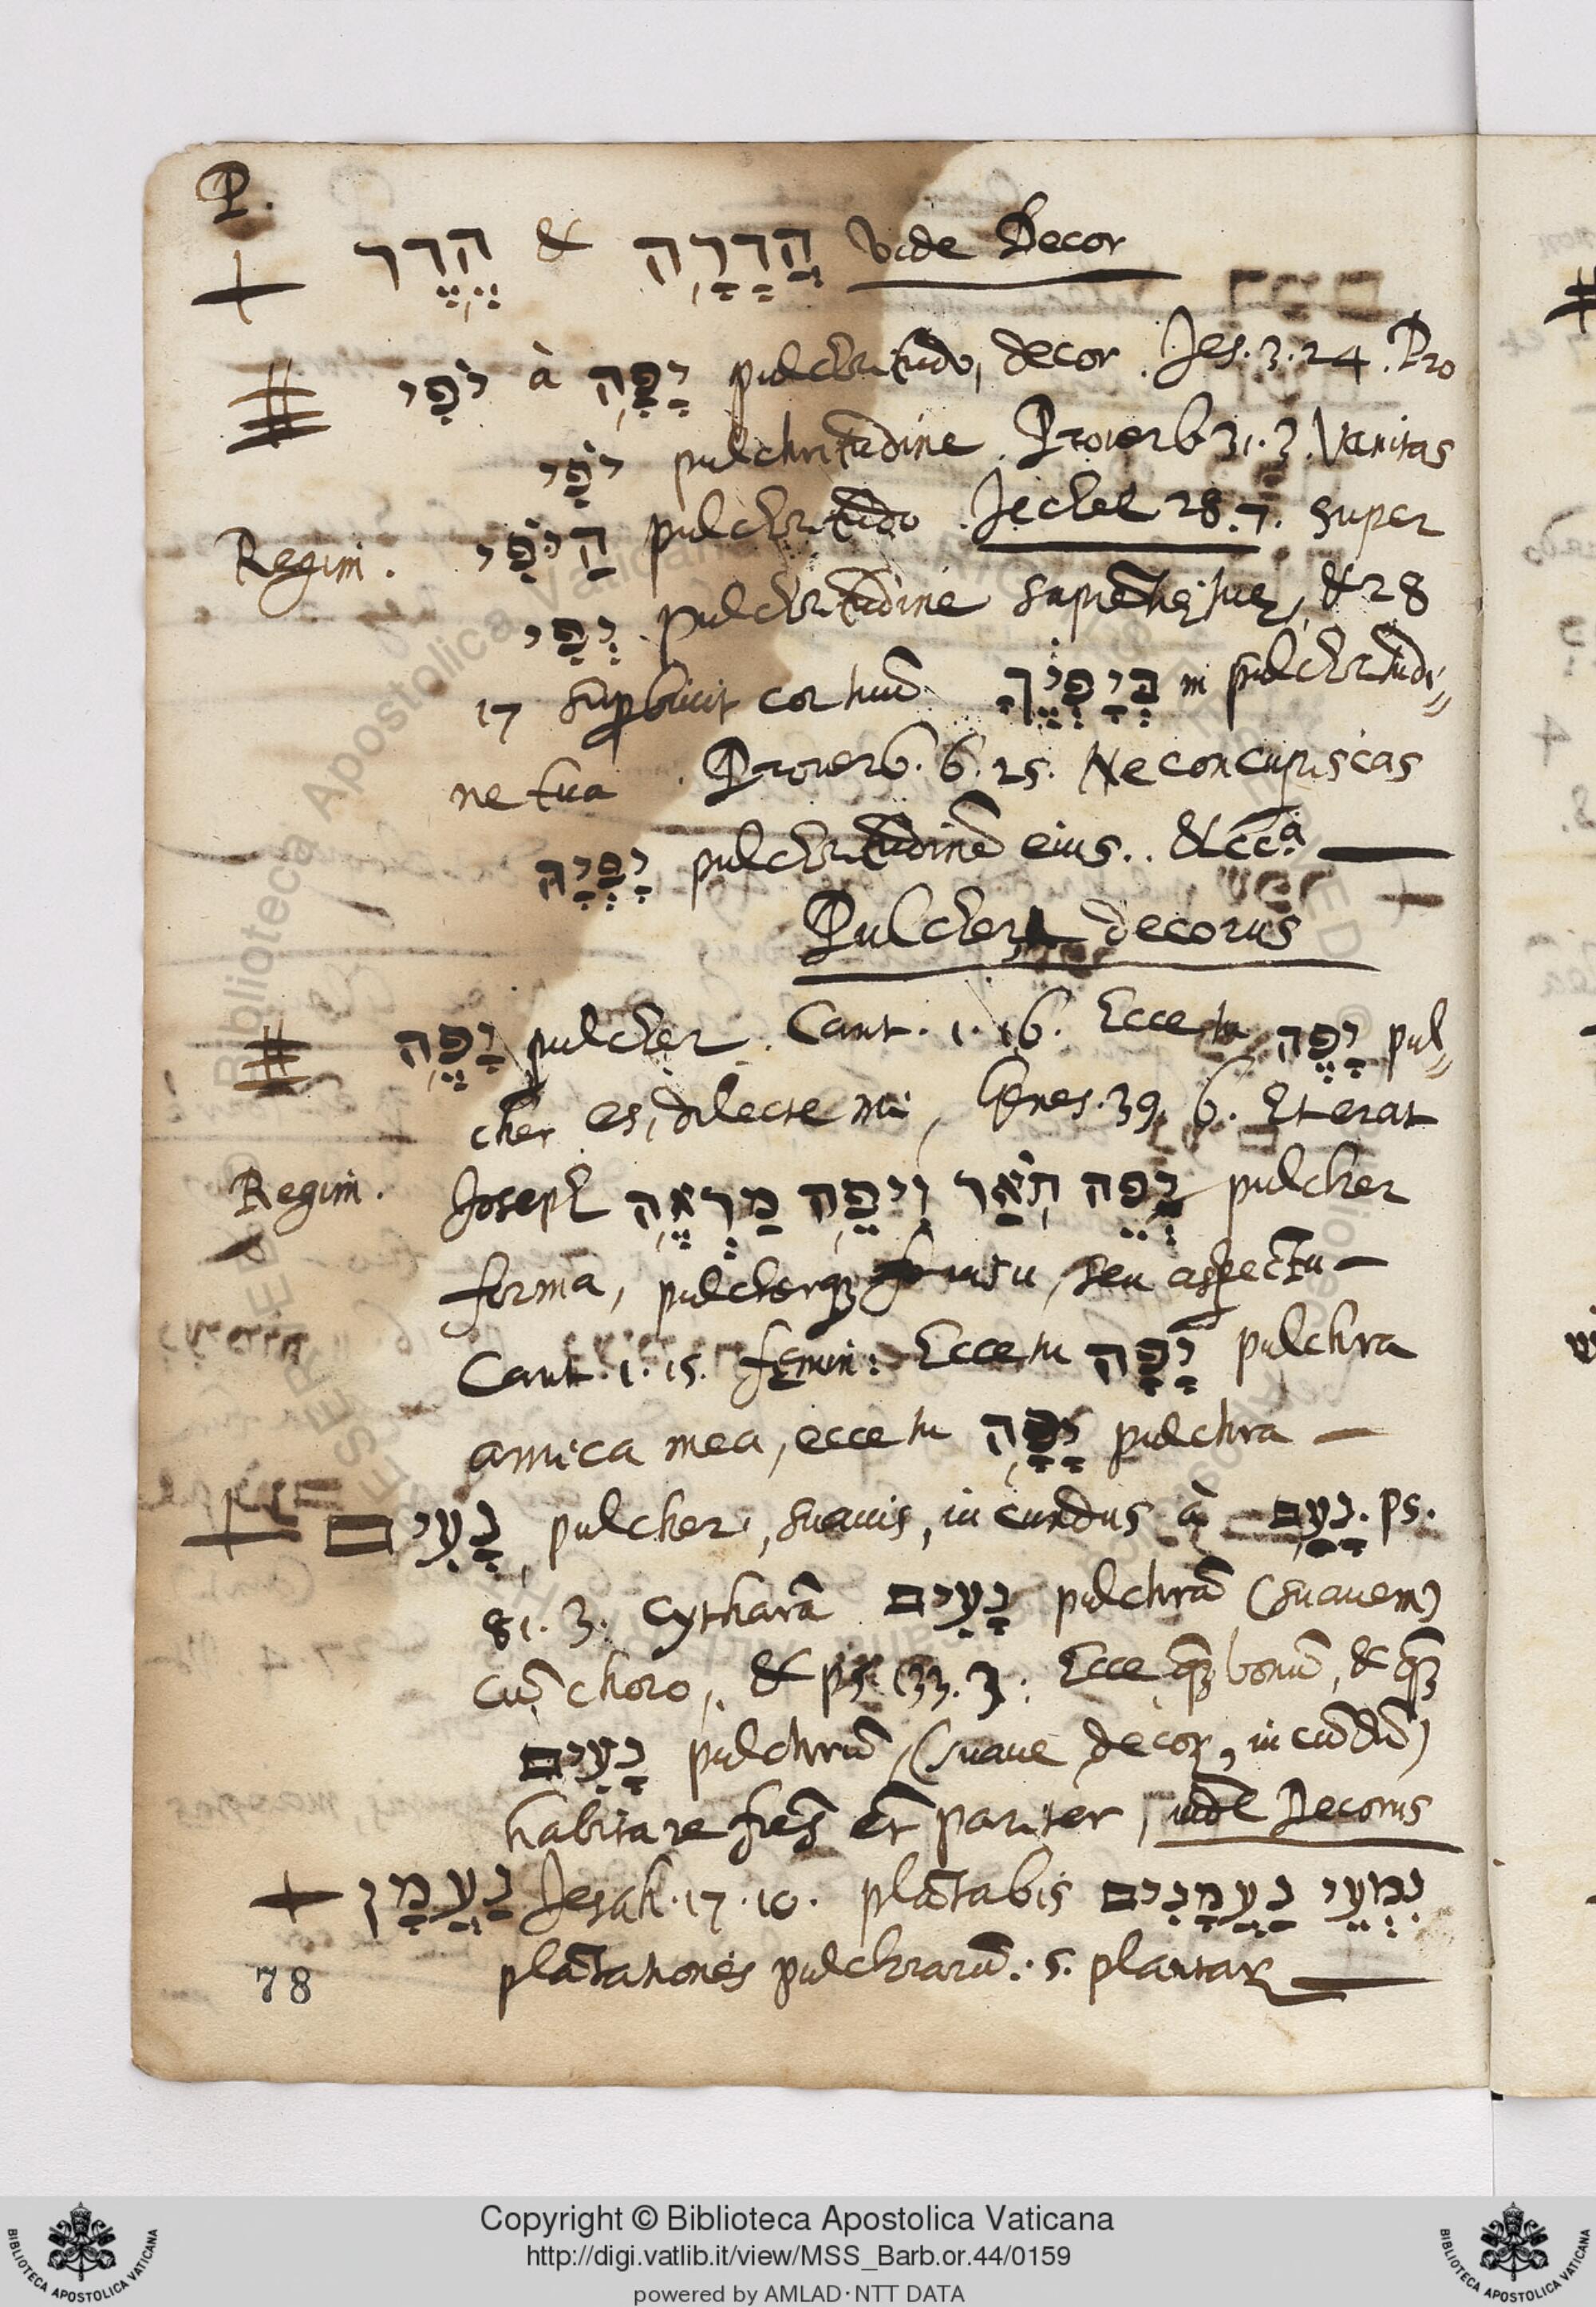 P.
הֶדֶר & הֲדָרָה Vide Decor
יֹפִי à יָפָה pulchritudo, decor. Jes. 3. 24. Pro
יֹפִי pulchritudine. Proverb 31. 3. Vanitas
Regim. הַיֹּפִי pulchritudo. Jechel 28. 7. super
יְפִי pulchritudine sapientię tuę, & 28
17 superbivit cor tuũ בְּיָפְיֶךָ in pulchritudi„
ne tua. Proverb. 6. 25. Ne concupiscas
יָפְיָהּ pulchritudinẽ eius.. & cc.ª
Pulcher, decorus
יָפֶה pulcher. Cant. 1. 16. Ecce tu יָפֶה pul„
cher es, dilecte mi, Genes. 39. 6. Et erat
Regim. Joseph יְפֵה תֹאַר וִיפֵה מַרְאֶה pulcher
forma, pulcherq; visu, seu aspectu
Cant. 1. 15. fęmin: Ecce tu יָפָה pulchra
amica mea, ecce tu יָפָה pulchra
נָעִים pulcher, suavis, iucundus à נָעַם. ps.
81. 3. Cytharã נָעִים pulchrã (suavem)
cũ choro, & ps. 133. 3: Ecce q̃ bonũ, & q̃
נָעִים pulchrũ, (suave decor, iucũdũ)
habitare fr̃es et pariter, vide Decorus
נַעֲמָן Jesah. 17. 10. plãtabis נִטְעֵי נַעֲמָנִים
plãtationes pulchrarũ: s. plantar
78
© Biblioteca Apostolica Vaticana
Copyright © Biblioteca Apostolica Vaticana
http://digi.vatlib.it/view/MSS_Barb.or.44/0159
powered by AMLAD·NTT DATA
BIBLIOTECA APOSTOLICA VATICANA
BIBLIOTECA APOSTOLICA VATICANA